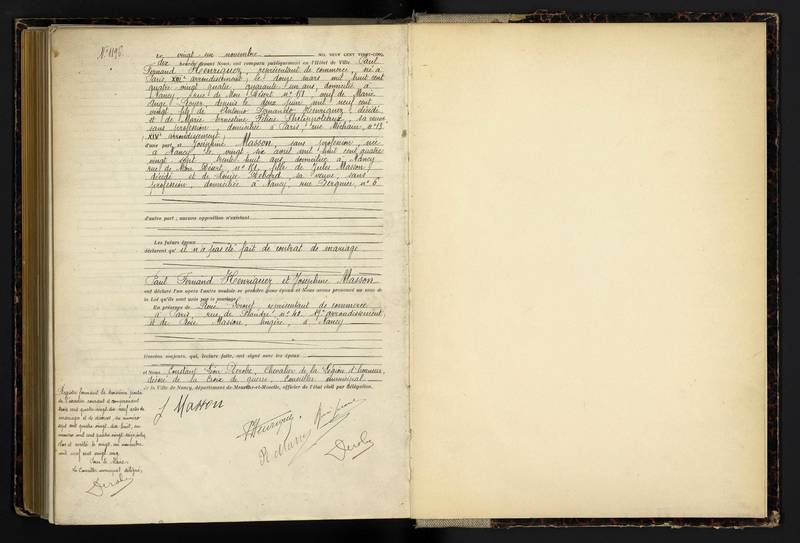 N° 1196
Le vingt un novembre MIL NEUF CENT VINGT-CINQ,
dix heures devant Nous, ont comparu publiquement en l'Hôtel de Ville Paul
Fernand Henriquez, représentant de commerce, né à
Paris, XIXe arrondissement, le douze mars mil huit cent
quatre vingt quatre, quarante un ans, domicilié à
Nancy, rue de Mon Désert n° 171 veuf de Marie
depuis le deux juin mil neuf cent
vingt fils de Antonio Fernando Henriquez décédé
et de Marie Ernestine Félicie sa veuve
sans profession, domiciliée à Paris, rue Méchain, n° 13
XIVe arrondissement;
d'une part, et Joséphine Masson, sans profession, née
à Nancy le vingt six avril mil huit cent quatre
vingt sept, trente huit ans, domiciliée à Nancy
rue de Mon Désert, n° 171, fille de Jules Masson
décédé et de Louise sa veuve, sans
profession, domiciliée à Nancy, rue n° 6
d'autre part; aucune opposition n'existant.
Les futurs époux
déclarent qu'il n'a pas été fait de contrat de mariage
Paul Fernand Henriquez et Joséphine Masson
ont déclaré l'un après l'autre vouloir se prendre pour époux et Nous avons prononcé au nom de
la Loi qu'ils sont unis par le mariage.
En présence de représentant de commerce
à Paris, rue de Flandre n° 42 19e arrondissement,
et de Rose Masson, lingère, à Nancy
Témoins majeurs, qui, lecture faite, ont signé avec les époux
et Nous Constant Léon Chevalier de la Légion d'honneur,
décoré de la Croix de guerre, Conseiller municipal
de la Ville de Nancy, département de Meurthe-et-Moselle, officier de l'état civil par délégation.
J Masson
PHenriquez
R Masson
Registre formant la troisième partie
de l'année courante et comprenant
trois cent quatre vingt dix neuf actes de
mariages et de divorces, du numéro
sept cent quatre vingt dix huit, au
numéro onze cent quatre vingt seize inclus,
clos et arrêté le vingt un novembre
mil neuf cent vingt cinq
Pour le Maire:
Le Conseiller municipal délégué,